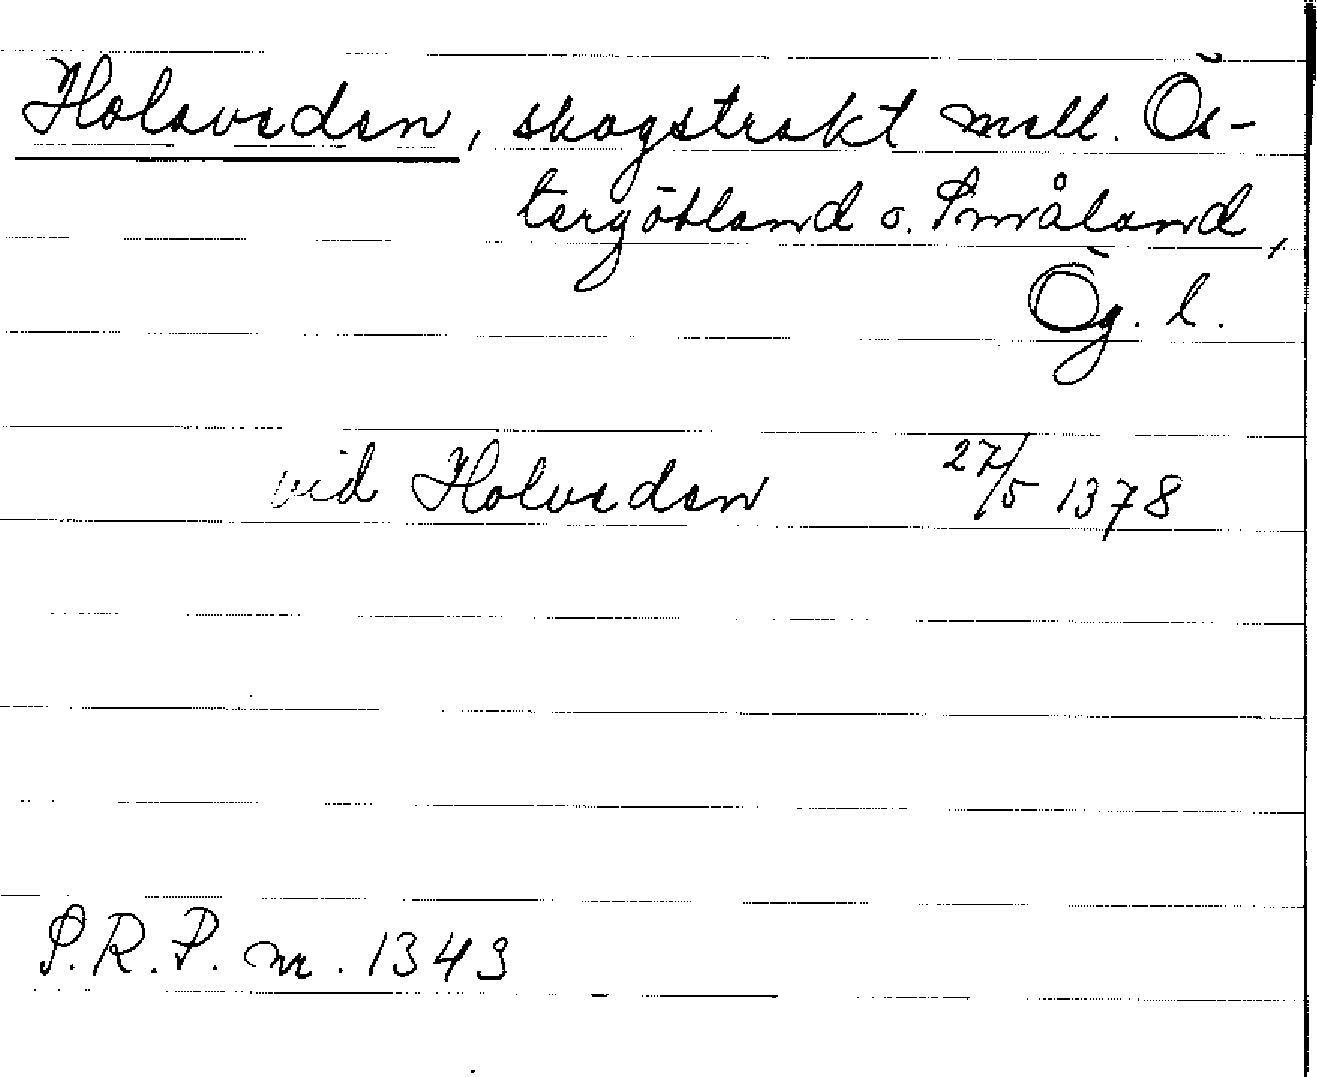 Holaveden, skogstrakt mell. Ös-
tergötland o. Småland,
Ög. l.
vid Holveden 27/5 1378
S.R.P. nr. 1343